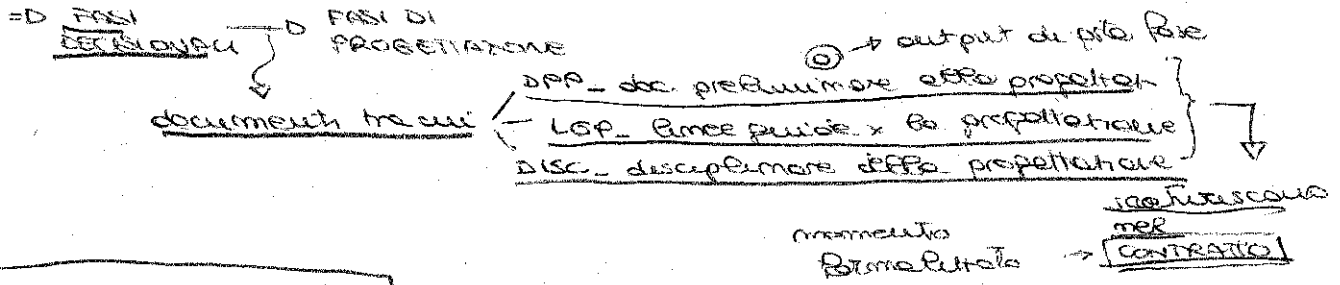 =D FASI —D FASI DI
DECISIONALI PROGETTAZIONE
→ output di qsta fase
documenti tra cui
DPP_ doc. preliminare alla progettaz
LGP_ linee guida x la progettazione
DISC_ disciplinare della progettazione
confluiscono
nel
momento
formalizzato → CONTRATTO